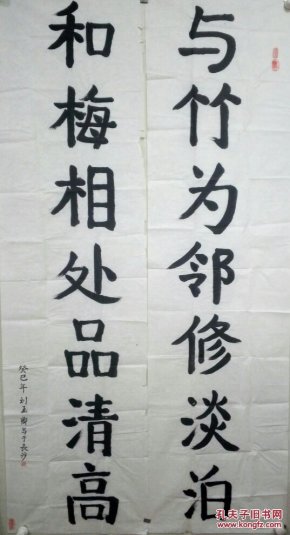 与竹为邻修淡泊
和梅相处品清高
癸巳年刘玉
于长沙
孔夫子旧书网